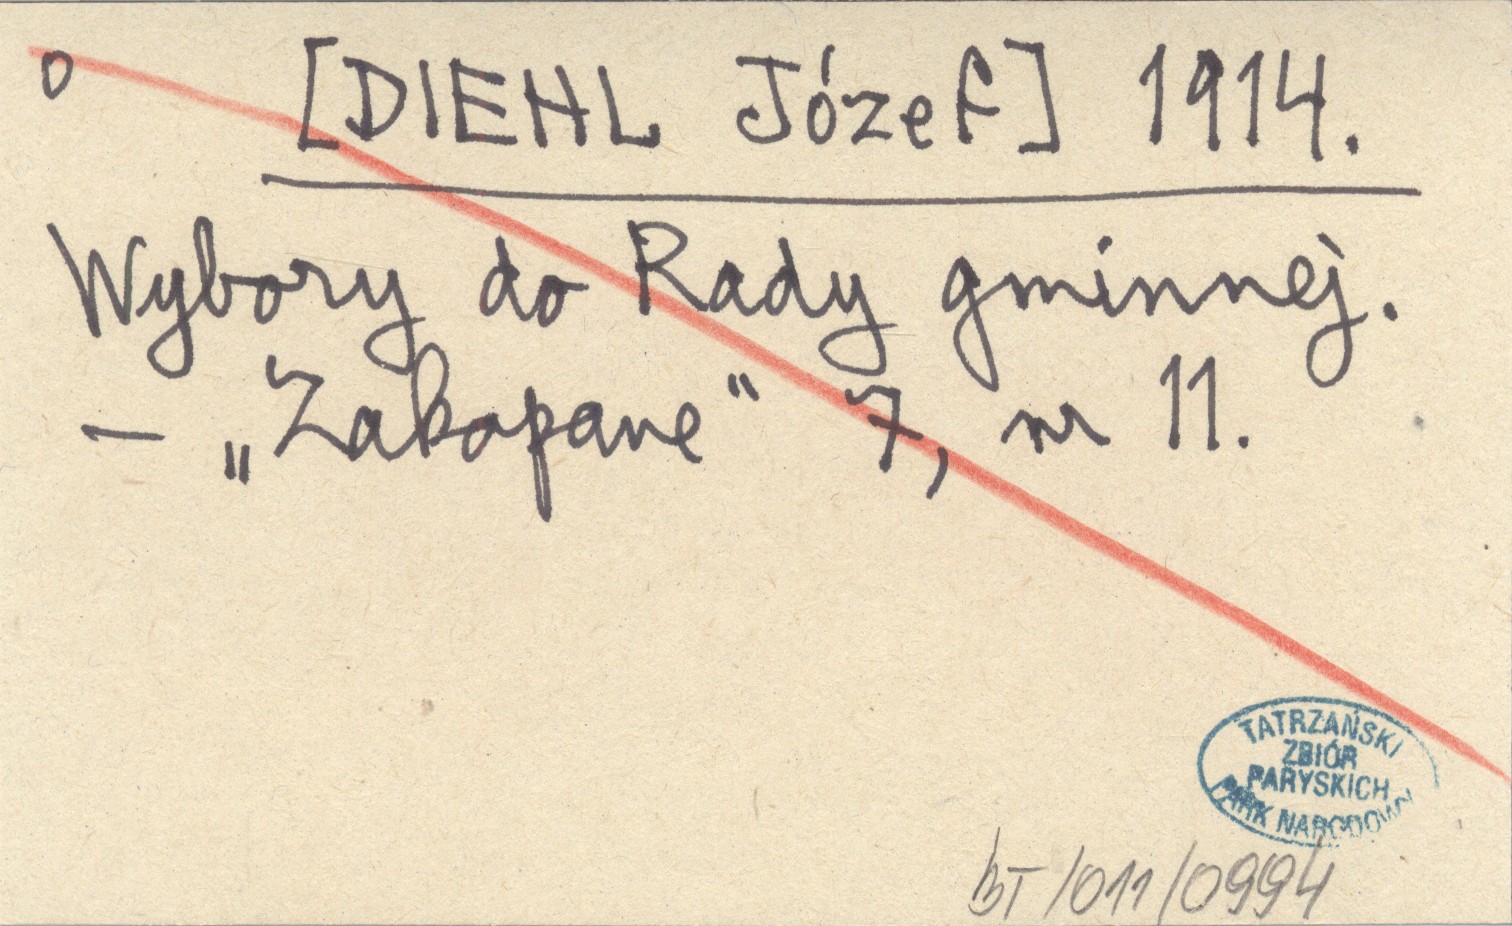 o [DIEHL Józef] 1914.
Wybory do Rady gminnej.
— „Zakopane“ 7, nr 11.
TATRZAŃSKI
ZBIÓR
PARYSKICH
PARK NARODOWY
BT/011/0994